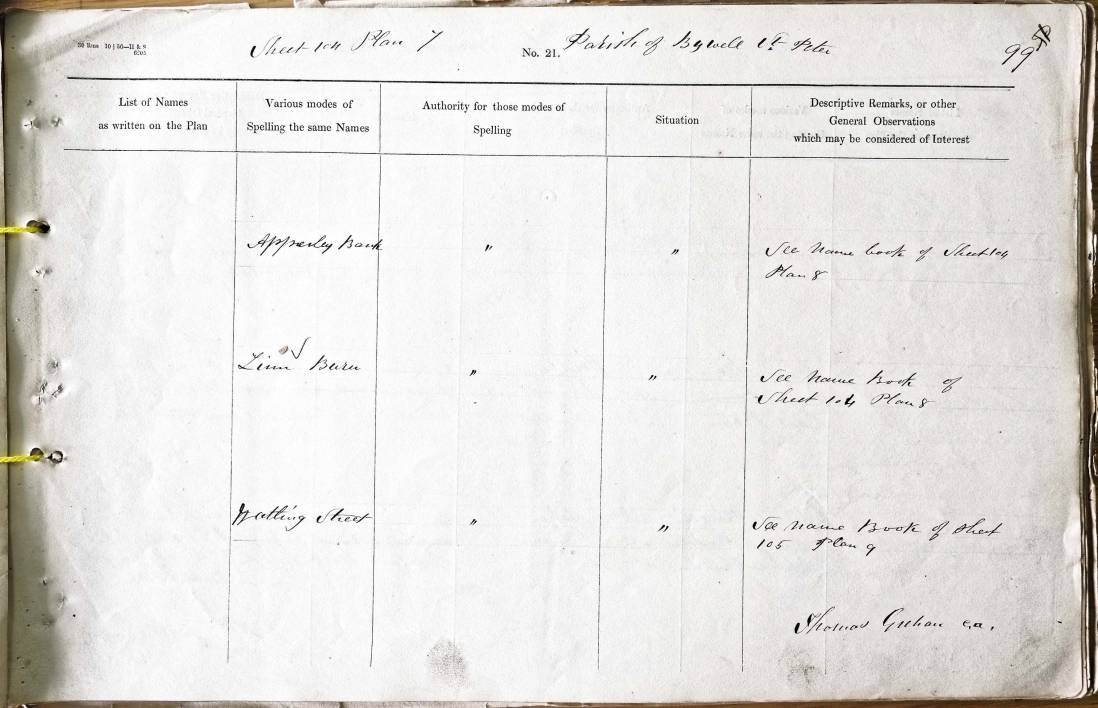 Sheet 104 Plan 7 No. 21. Parish of Bywell St Peter 99
List of Names
as written on the Plan
Various modes of
Spelling the same Names
Authority for those modes of
Spelling
Situation
Descriptive Remarks, or other
General Observations
which may be considered of Interest
Apperley Bank " " See Name book of Sheet 104
Plan 8
Linn Burn " " See Name Book of
Sheet 104 Plan 8
Watling Street " " See name Book of Sheet
105 Plan 9
Thomas C.A.